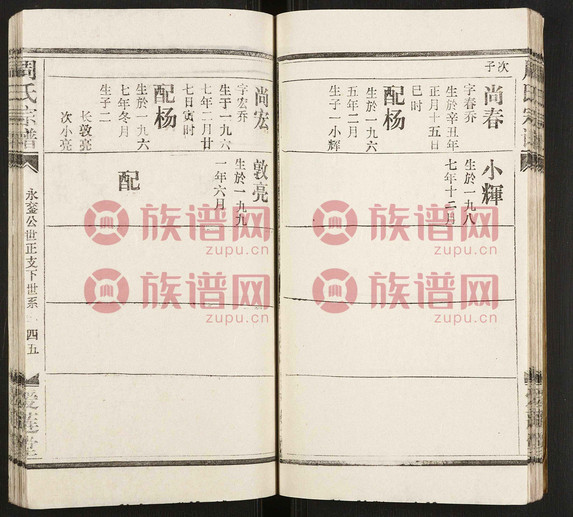 次子
尚春
字春乔
生於辛丑年
正月十五日
巳时
配杨
生於一九六
五年二月
生子一小輝
小輝
生於一九八
七年十二月
尚宏
字宏乔
生于一九六
七年二月廿
七日寅时
配杨
生於一九六
七年冬月
生子二
长敦亮
次小亮
敦亮
生於一九九
一年六月
配
周氏宗谱
永銮公世正支下世系
四五
爱莲堂
族谱网
zupu.cn
族谱网
zupu.cn
族谱网
zupu.cn
族谱网
zupu.cn